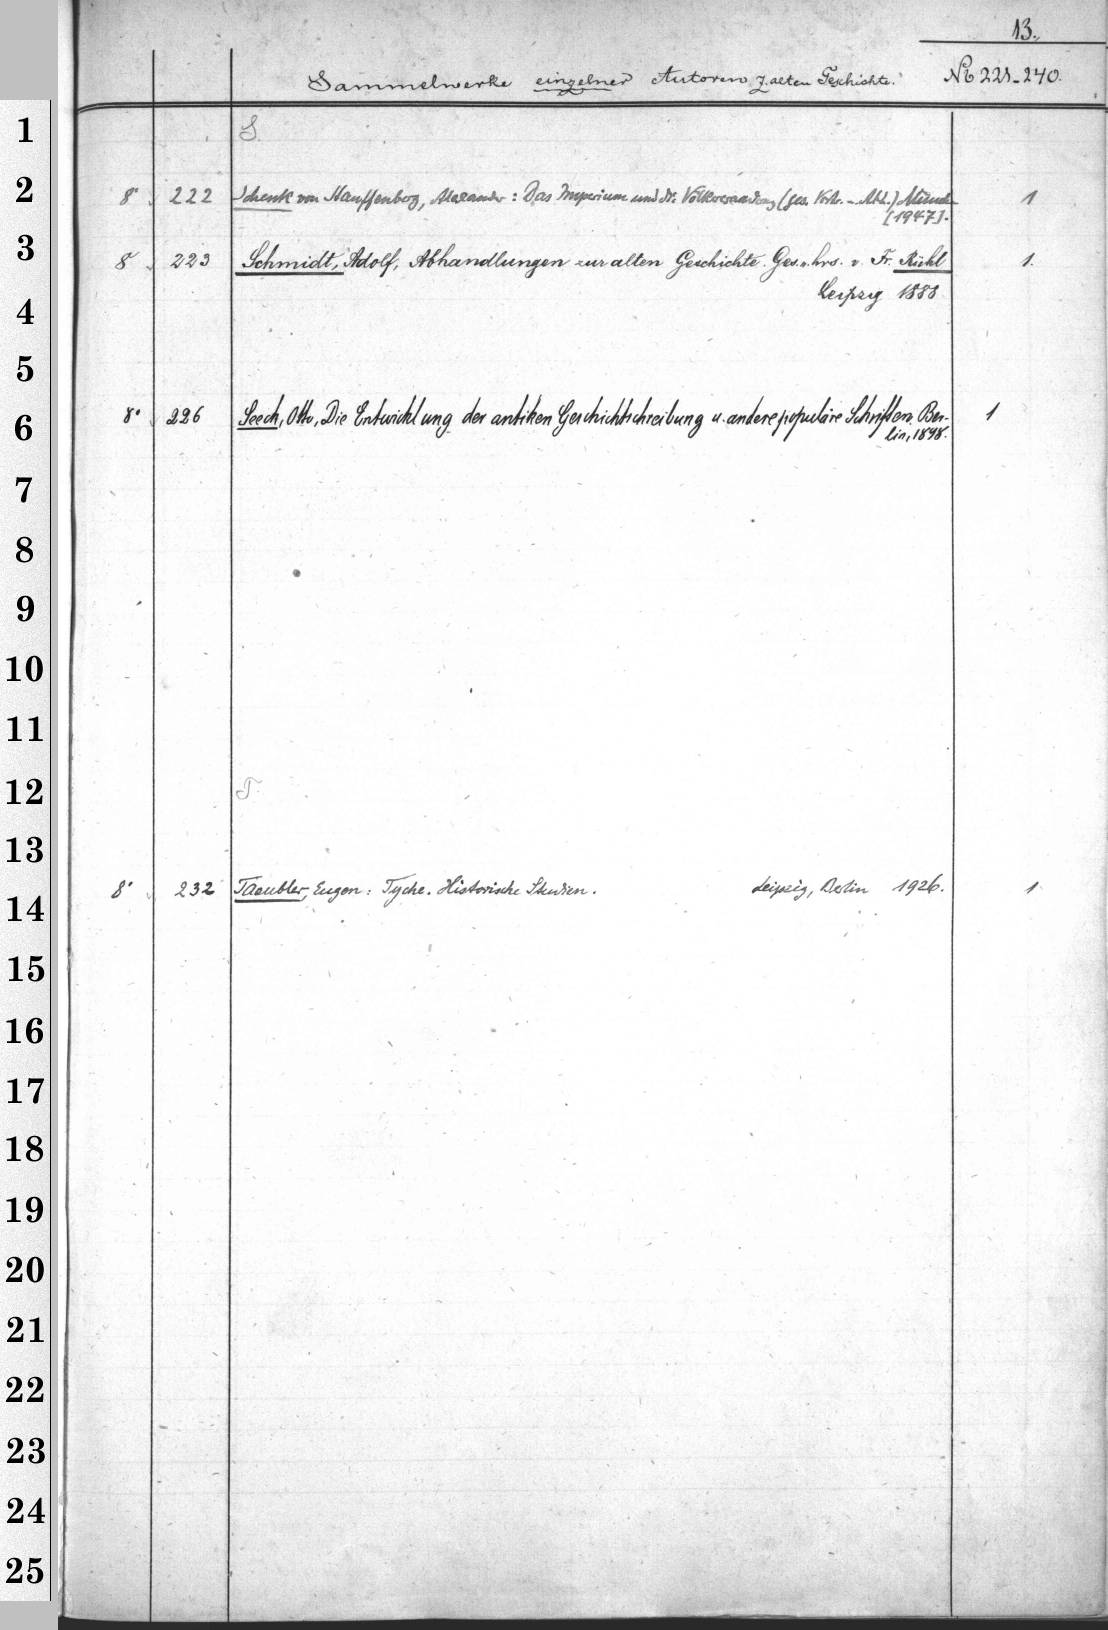 13.
Sammelwerke einzelner Autoren z. alten Geschichte. No 221-240.
1
S.
2
8° 222 Schenk von Stauffenberg, Alexander: Das Imperium und die Völkerwanderung (ges. Vortr. - Abh.) Münch 1
[1947].
3
8° 223 Schmidt, Adolf, Abhandlungen zur alten Geschichte. Ges. u. hrs. v. Fr. Rühl 1.
4
Leipzig 1888
5
6
8° 226 Seeck, Otto, Die Entwicklung der antiken Geschichtschreibung u. andere populäre Schriften. Ber- 1
lin, 1898.
7
8
9
10
11
12
T.
13
8° 232 Taeubler, Eugen: Tyche. Historische Studien. Leipzig, Berlin 1926. 1
14
15
16
17
18
19
20
21
22
23
24
25